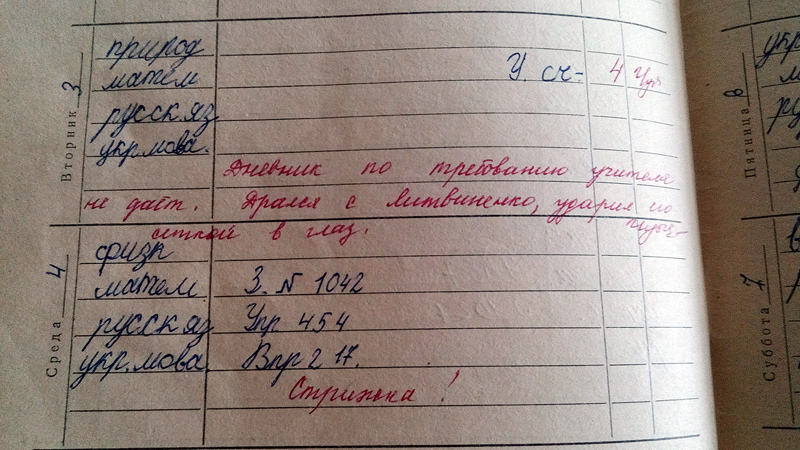 Вторник 3
природ
матем У. сч- 4
русск яз
укр. мова.
Дневник по требованию учителя
не даёт. Дрался с Литвиненко, ударил его
в глаз.
Среда 4
физк
матем. З. № 1042
русск яз Упр 454
укр. мова. Впр 217.
Стрижка!
Пятница
8
Суббота 7